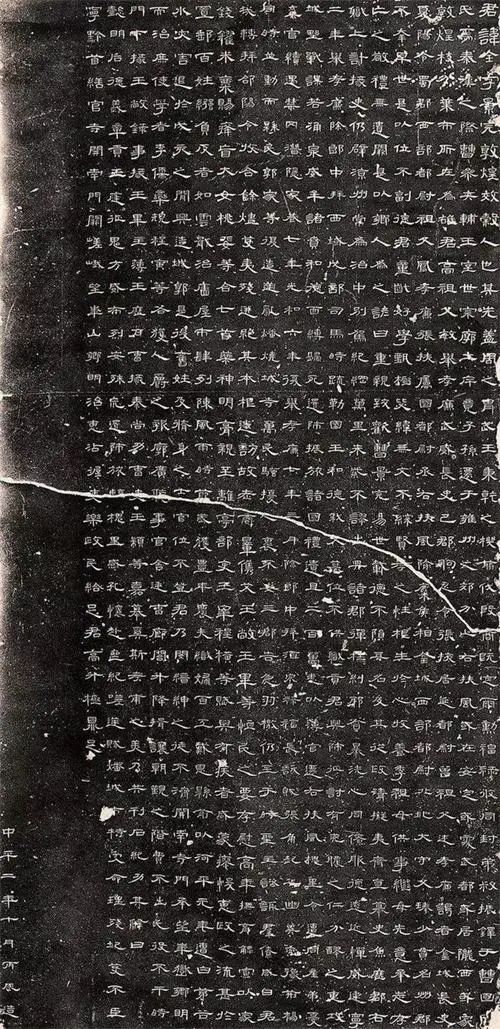 君諱全字景完敦煌效穀人也其先蓋周之冑武王秉乾之機翦伐殷商既定爾勳福祿攸同封弟叔振鐸于曹國因
氏焉秦漢之際曹參夾輔王室世宗廓土斥竟子孫遷于雍州之郊分止右扶風或在安定或處武都或居隴西或家
敦煌枝分葉布所在為雄君高祖父敏舉孝廉武威長史巴郡朐忍令張掖居延都尉曾祖父述孝廉謁者金城長史
夏陽令蜀郡西部都尉祖父鳳孝廉張掖屬國都尉丞右扶風隃麋侯相金城西部都尉北地太守父琫少貫名州郡
不幸早世是以位不副德君童齔好學甄極毖緯無文不綜賢孝之性根生於心收養季祖母供事繼母先意承志存
亡之敬禮無遺闕是以鄉人為之諺曰重親致歡曹景完易世載德不隕其名及其從政清擬夷齊直慕史魚歷郡右
職上計掾史仍辟涼州常為治中別駕紀綱萬里朱紫不謬出典諸郡彈枉糾邪貪暴洗心同僚服德遠近憚威建寧
二年舉孝廉除郎中拜西域戊部司馬時疏勒國王和德弒父篡位不供職貢君興師征討有吮膿之仁分醪之惠攻
城野戰謀若涌泉威牟諸賁和德面縛歸死還師振旅諸國禮遺且二百萬悉以薄官遷右扶風槐里令遭同產弟憂
棄官續遇禁冈潛隱家巷七年光和六年復舉孝廉七年三月除郎中拜酒泉祿福長訞賊張角起兵幽冀兗豫荊楊
同時並動而縣民郭家等復造逆亂燔燒城寺萬民騷擾人裹不安三郡告急羽檄仍至于時聖主諮諏群僚咸曰君
哉轉拜郃陽令收合餘燼芟夷殘迸絕其本根遂訪故老商量俊艾王敞王畢等恤民之要存慰高年撫育鰥寡以家
錢糴米粟賜癃盲大女桃婓等合七首藥神明膏親至離亭部吏王宰程橫等賦與有疾者咸蒙瘳悛惠政之流甚於
置郵百姓繈負反者如雲戢治廧屋市肆列陳風雨時節歲獲豐年農夫織婦百工戴恩縣前以河平元年遭白茅谷
水災害退於戌亥之間興造城郭是後舊姓及脩身之士官位不登君乃閔縉紳之徒不濟開南寺門承望華嶽鄉明
而治庶使學者李儒欒規程寅等各獲人爵之報廓廣聽事官舍廷曹廊閤升降揖讓朝覲之階費不出民役不干時
門下掾王敞錄事掾王畢主簿王歷戶曹掾秦尚功曹史王顓等嘉慕奚斯考甫之美乃共刊石紀功其辭曰
懿明后德義章貢王庭征鬼方威布烈安殊巟還師旅臨槐里感孔懷赴喪紀嗟逆賊燔城市特受命理殘圮芟不臣
寧黔首繕官寺開南門闕嵯峨望華山鄉明治惠沾渥吏樂政民給足君高升極鼎足
中平二年十月丙辰造